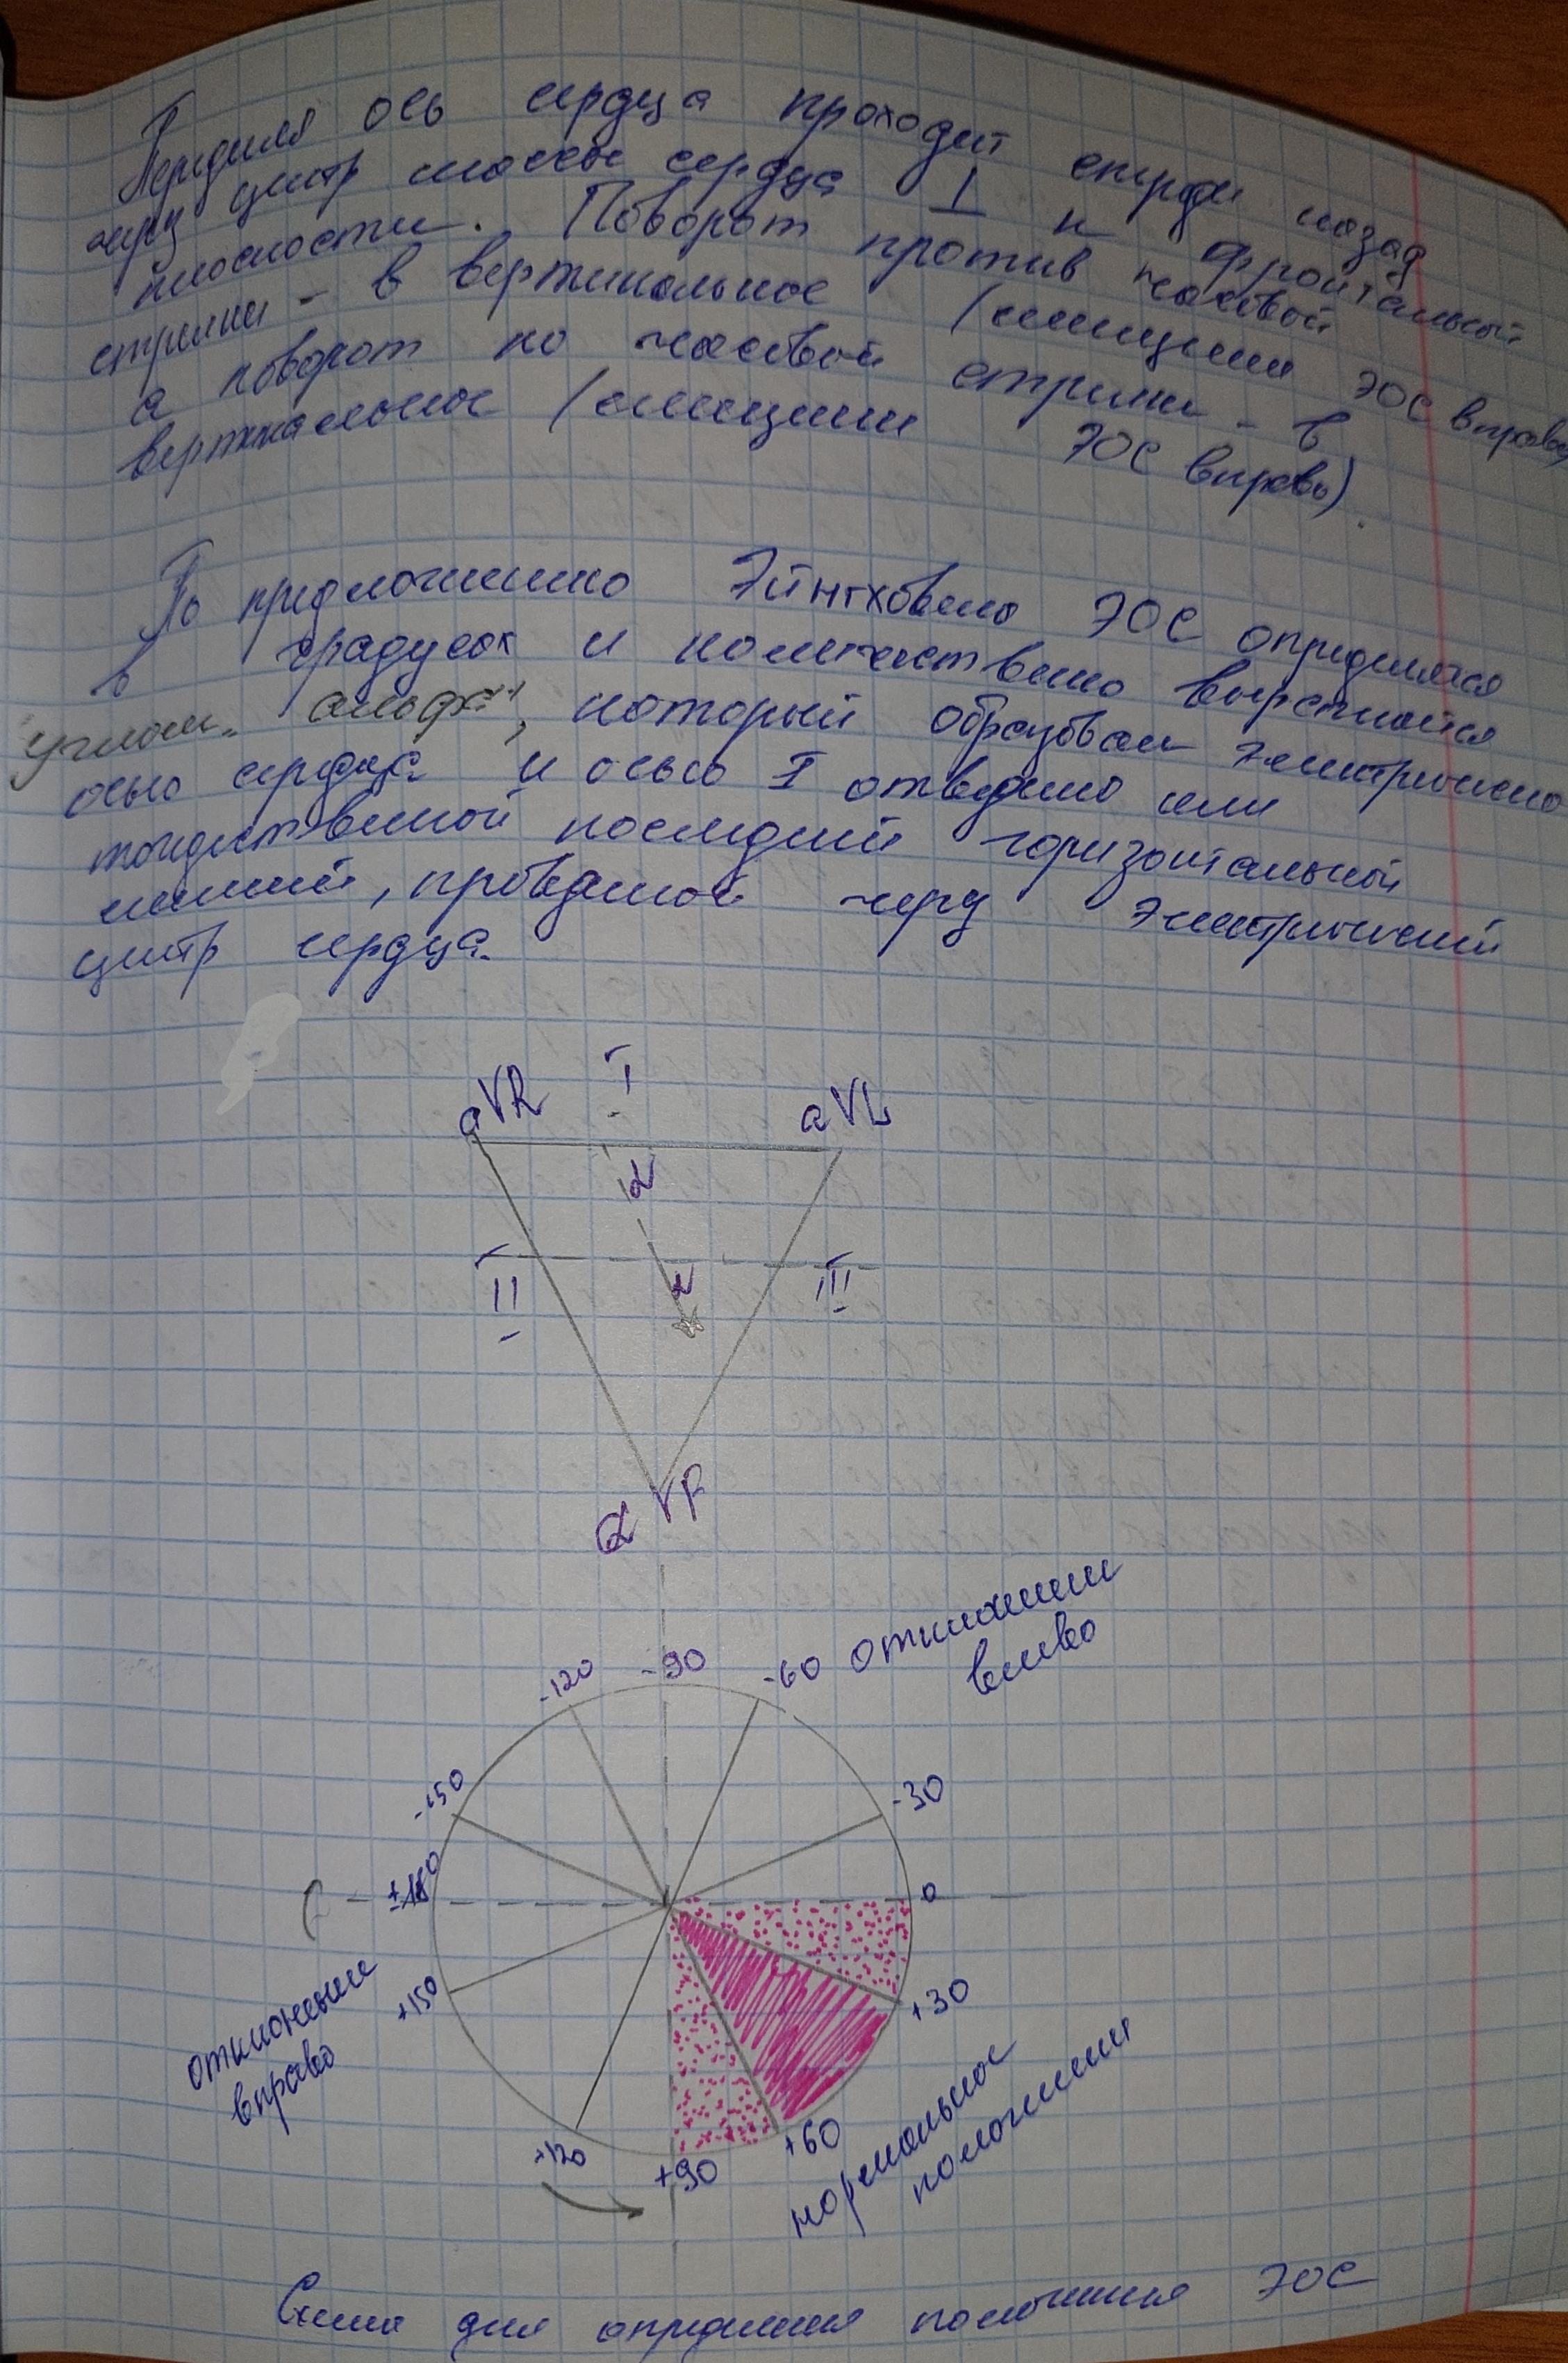 Передняя ось сердца проходит спереди назад
через центр массы сердца ⊥ к фронтальной
плоскости. Поворот против часовой
стрелки - в вертикальное (смещение ЭОС вправо)
а поворот по часовой стрелки - в
вертикальное (смещение ЭОС вправо).
По предложению Эйнтховена ЭОС определяется
в градусах и количественно выражается
углом "альфа", который образован электрической
осью сердца и осью I отведения или
тождественной последней горизонтальной
линией, проведенной через электрический
центр сердца.
I
aVR aVL
α
II α III
aVF
-120 -90 -60 отклонение
влево
-150 -30
±180 0
+150 +30
отклонение
вправо
+120 +90 +60
нормальное
положение
Схема для определения положения ЭОС